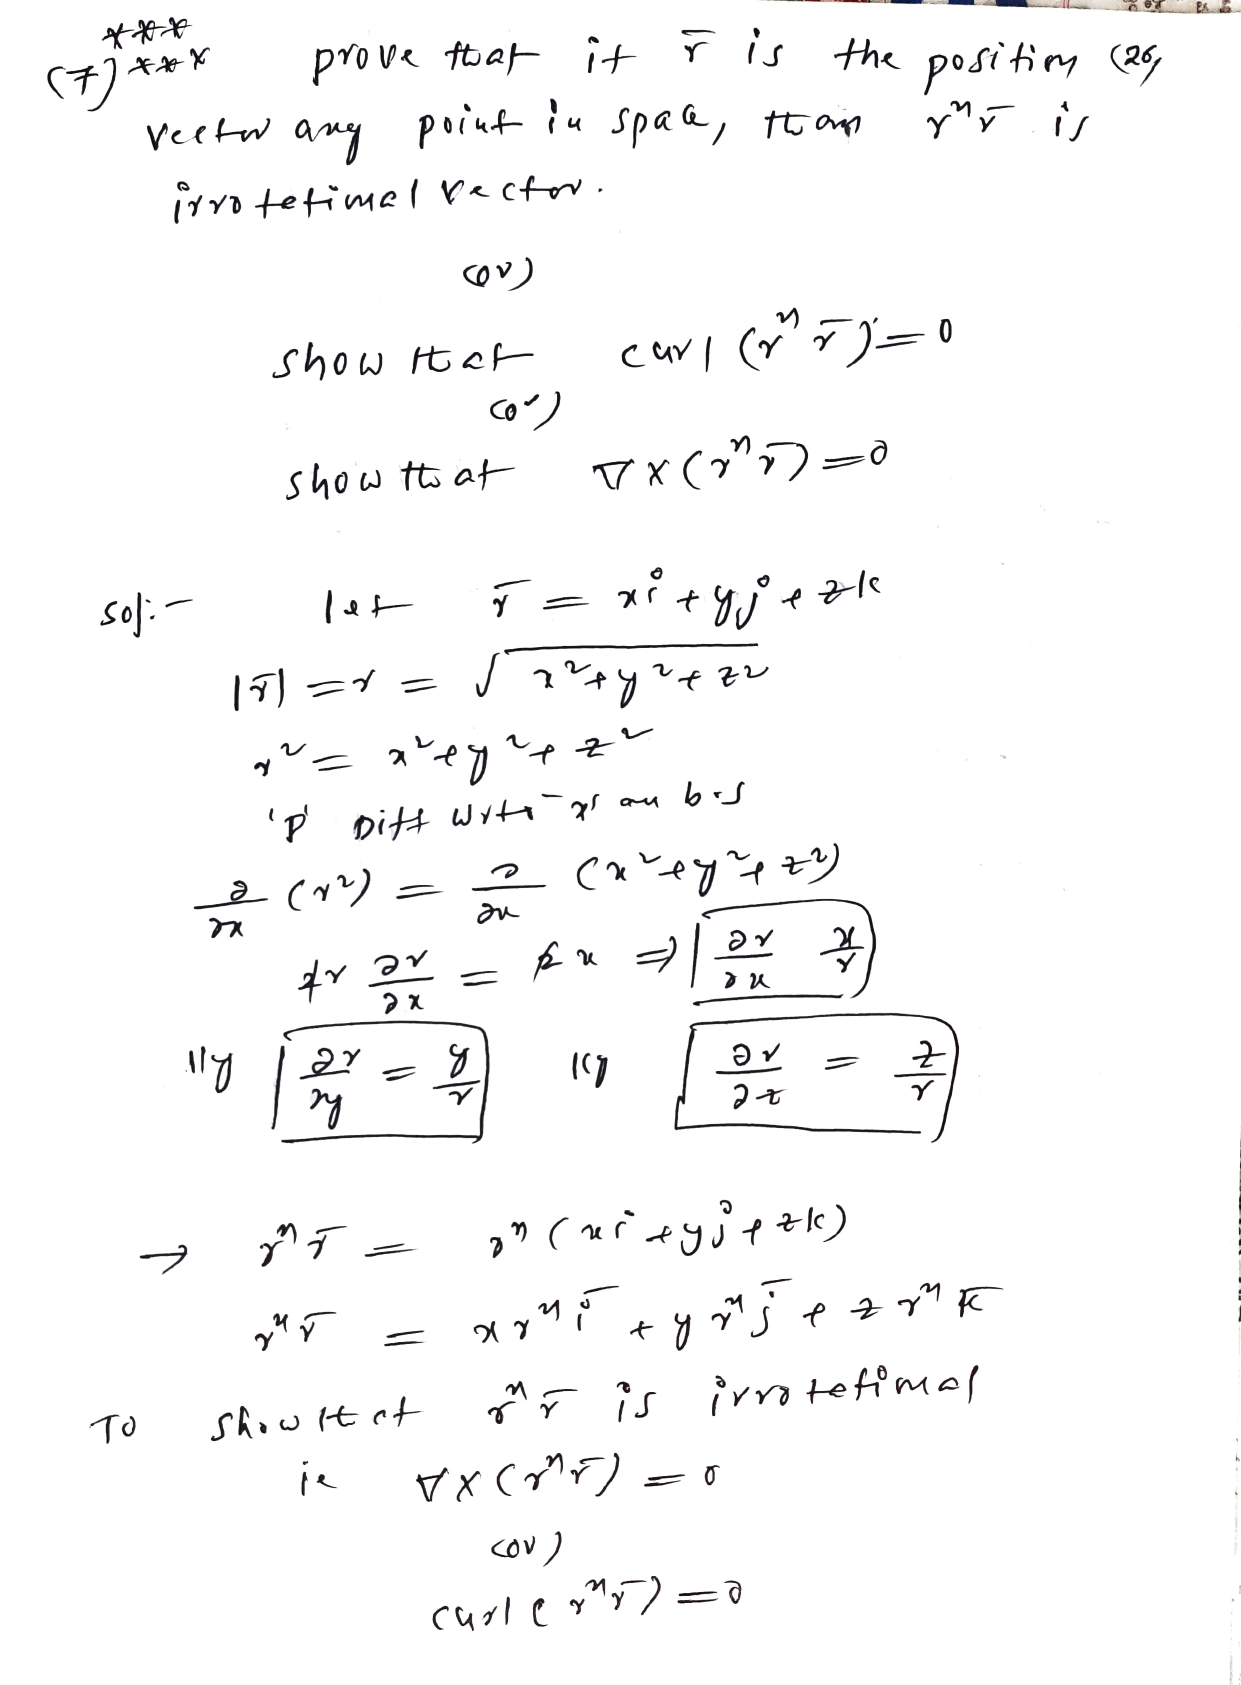 ***
(7) *** prove that if r̄ is the position (26,
vector any point in space, than rⁿ r̄ is
irrotetional vector.
(or)
show that curl (rⁿ r̄) = 0
(or)
show that ∇ × (rⁿ r̄) = 0
sol:- let r̄ = xi + yj + zk
|r̄| = r = √x² + y² + z²
r² = x² + y² + z²
'P' Diff w.r.to - 'x' on b.s
∂/∂x (r²) = ∂/∂x (x² + y² + z²)
2r ∂r/∂x = 2x ⇒ ∂r/∂x x/r
lly ∂r/∂y = y/r lly ∂r/∂z = z/r
→ rⁿ r̄ = rⁿ (xi + yj + zk)
rⁿ r̄ = x rⁿ ī + y rⁿ j̄ + z rⁿ k̄
To show that rⁿ r̄ is irrotetional
ie ∇ × (rⁿ r̄) = 0
(or)
curl (rⁿ r̄) = 0